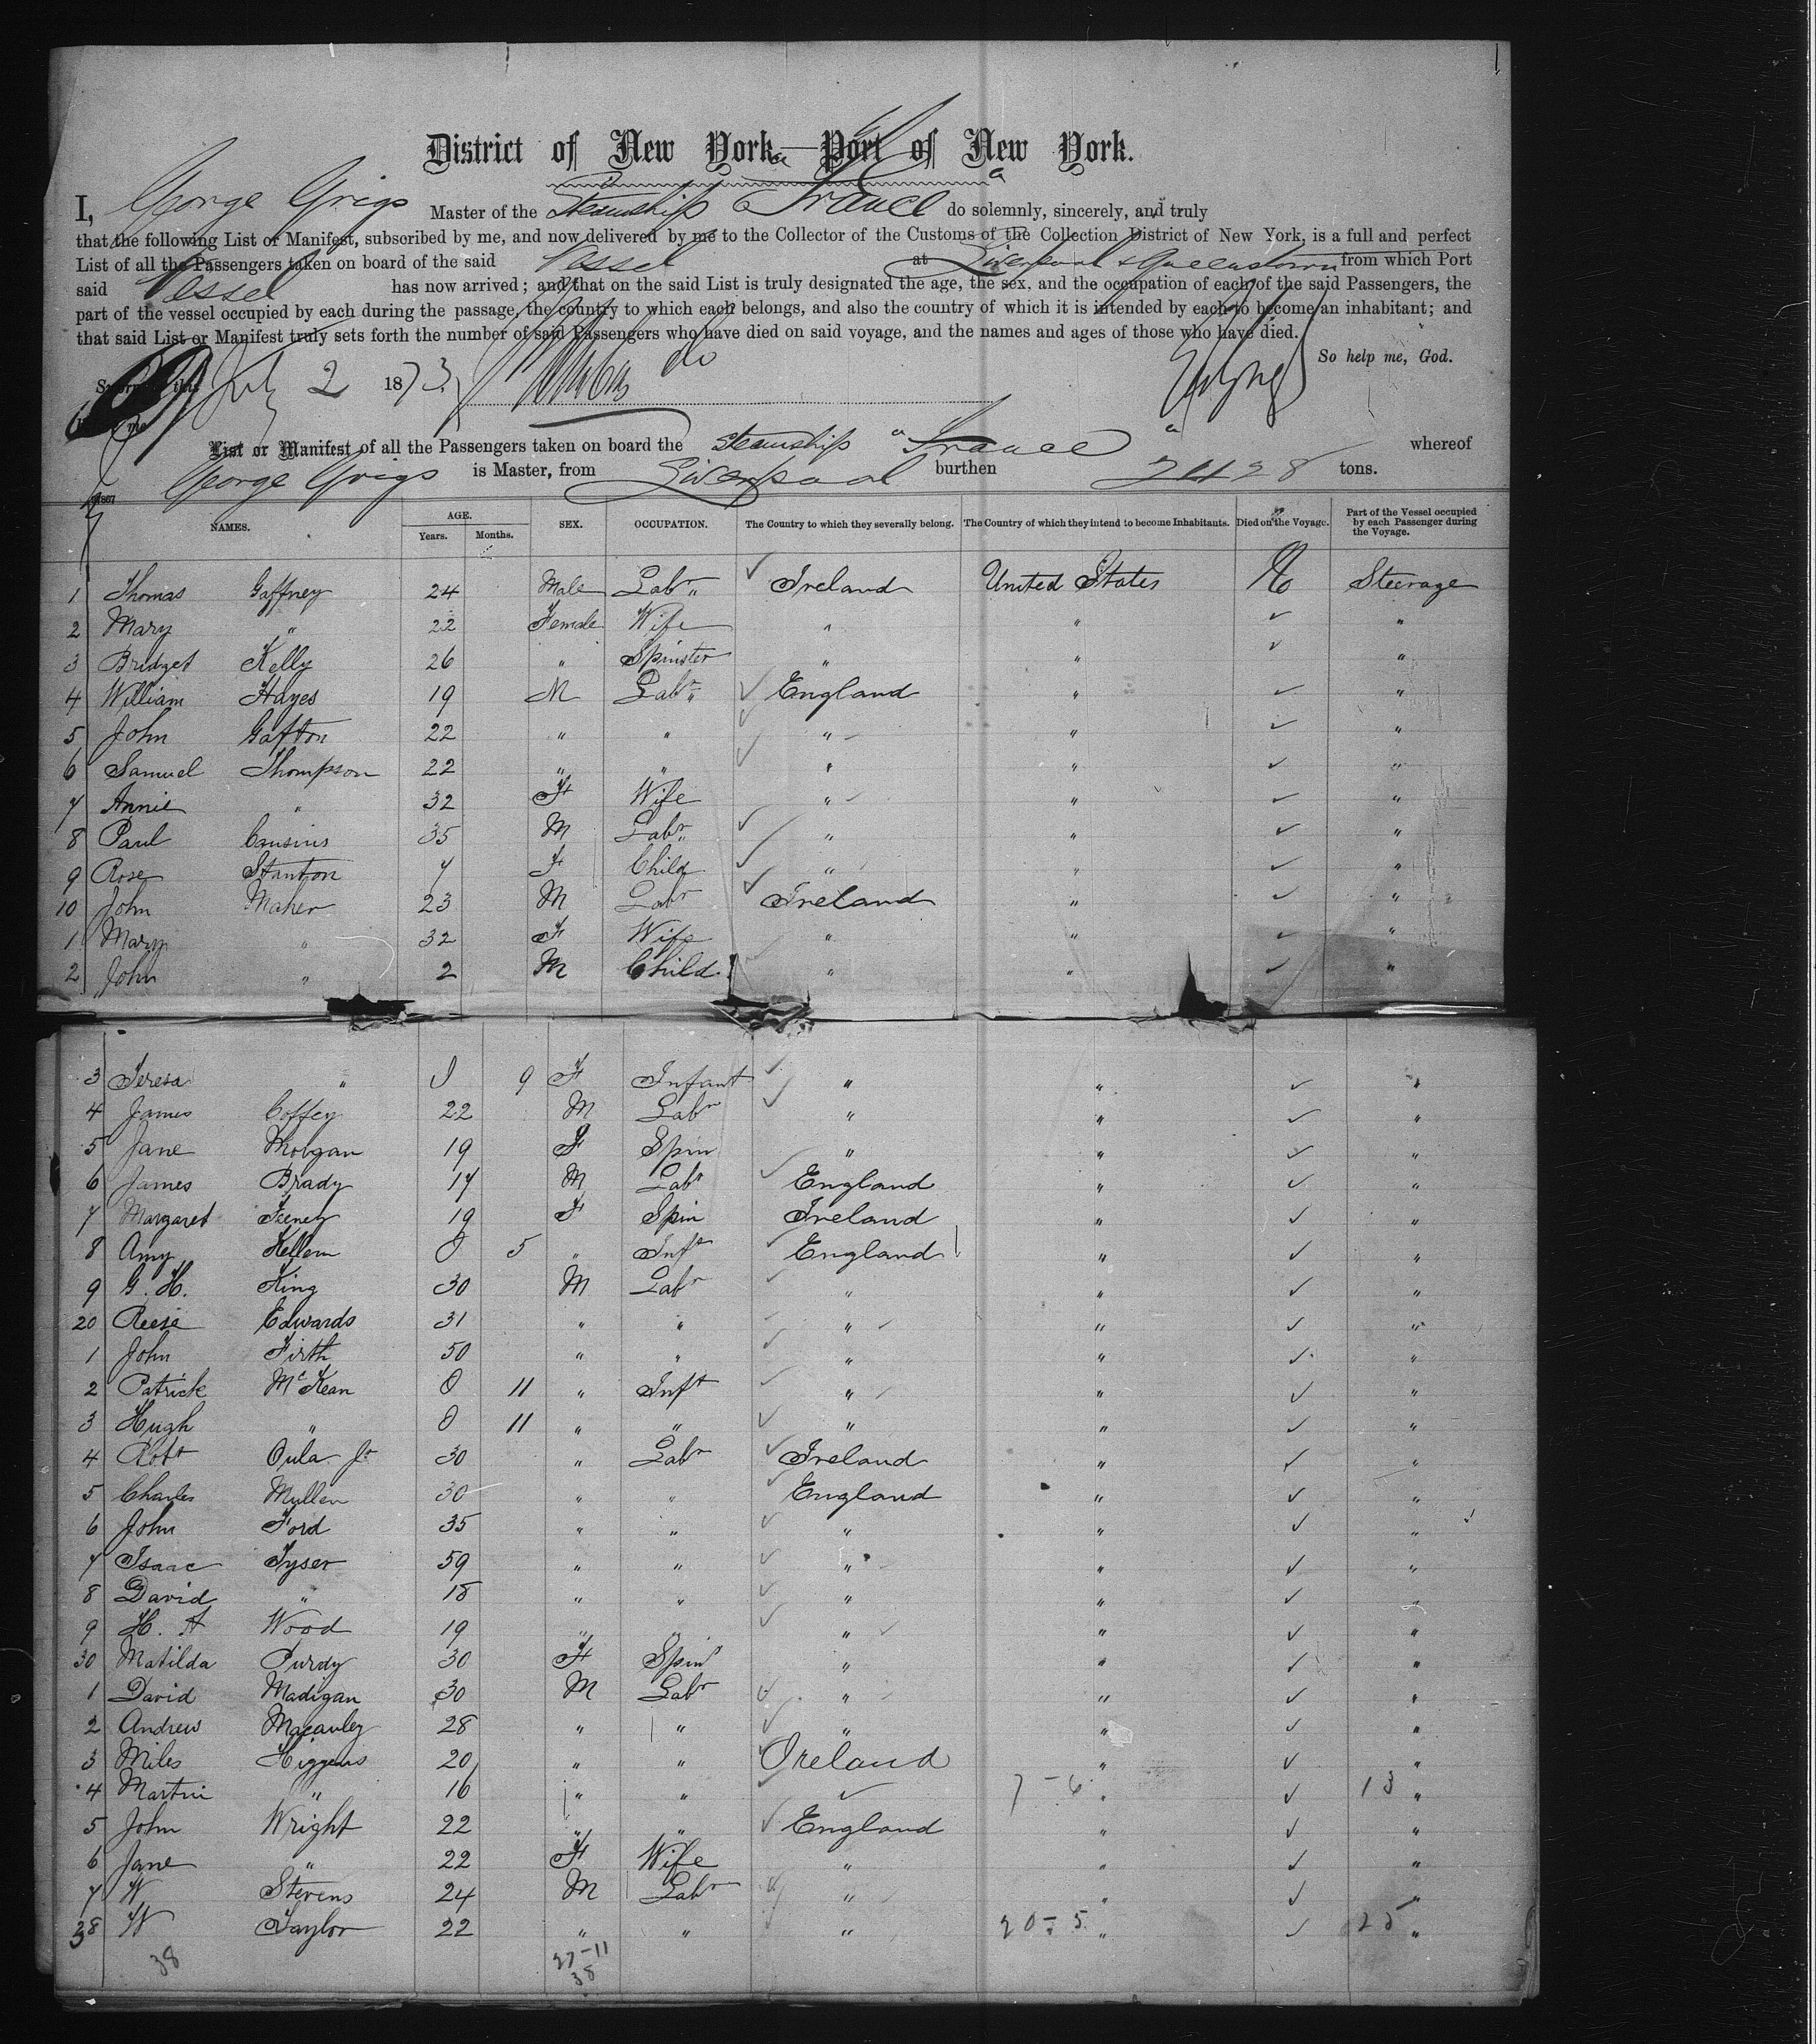 District of New York—Port of New York.
I, George Grigs Master of the Steamship "France" do solemnly, sincerely, and truly
that the following List or Manifest, subscribed by me, and now delivered by me to the Collector of the Customs of the Collection District of New York, is a full and perfect
List of all the Passengers taken on board of the said Vessel at Liverpool & Queenstown from which Port
said Vessel has now arrived; and that on the said List is truly designated the age, the sex, and the occupation of each of the said Passengers, the
part of the vessel occupied by each during the passage, the country to which each belongs, and also the country of which it is intended by each to become an inhabitant; and
that said List or Manifest truly sets forth the number of said Passengers who have died on said voyage, and the names and ages of those who have died.
So help me, God.
Sworn this July 2 1873
me
List or Manifest of all the Passengers taken on board the Steamship "France" whereof
George Grigs is Master, from Liverpool burthen 2428 tons.
NAMES. AGE. Years. Months. SEX. OCCUPATION. The Country to which they severally belong. The Country of which they intend to become Inhabitants. Died on the Voyage. Part of the Vessel occupied by each Passenger during the Voyage.
1 Thomas Gaffney 24 Male Labr Ireland United States No Steerage
2 Mary " 22 Female Wife " " "
3 Bridget Kelly 26 " Spinster " " "
4 William Hayes 19 M Labr England " "
5 John Gafton 22 " " " " "
6 Samuel Thompson 22 " " " " "
7 Annie " 32 F Wife " " "
8 Paul Cousins 35 M Labr " " "
9 Rose Stanton 7 F Child " " "
10 John Maher 23 M Labr Ireland " "
1 Mary " 32 F Wife " " "
2 John " 2 M Child " " "
3 Teresa " 0 9 F Infant " " "
4 James Coffey 22 M Labr " " "
5 Jane Morgan 19 F Spin " " "
6 James Brady 17 M Labr England " "
7 Margaret Feeney 19 F Spin Ireland " "
8 Amy Kellem 0 5 " Inft England " "
9 G. H. King 30 M Labr " " "
20 Reese Edwards 31 " " " " "
1 John Firth 50 " " " " "
2 Patrick McKean 0 11 " Inft " " "
3 Hugh " 0 11 " " " " "
4 Robt 30 " Labr Ireland " "
5 Charles Mullen 30 " " England " "
6 John Ford 35 " " " " "
7 Isaac Tyser 59 " " " " "
8 David " 18 " " " " "
9 H. A Wood 19 " " " " "
30 Matilda Purdy 30 F Spinr " " "
1 David Madigan 30 M Labr " " "
2 Andrew Macauley 28 " " " " "
3 Miles Higgens 20 " " Ireland " "
4 Martin " 16 " " 7-6 " 13 "
5 John Wright 22 " " England " "
6 Jane " 22 F Wife " " "
7 W Stevens 24 M Labr " " "
38 W Taylor 22 " " " 20-5 " 25 "
38 27-11
38